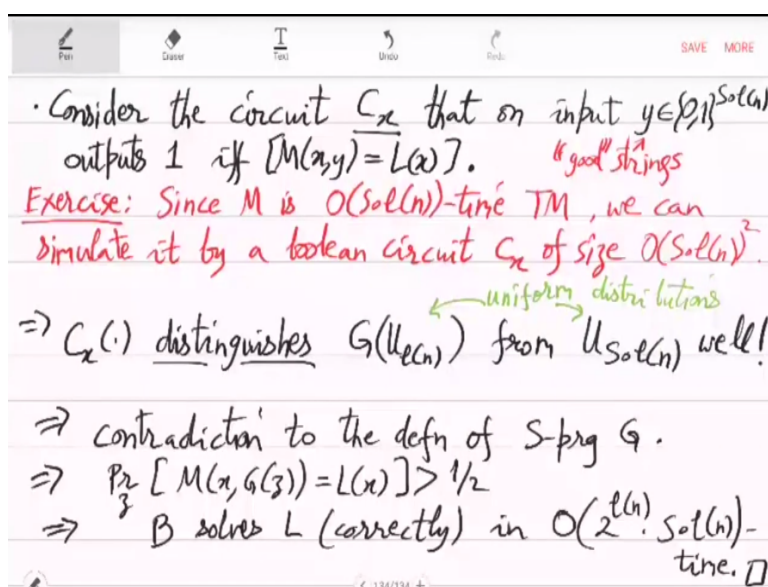 Pen Eraser Text Undo Redo SAVE MORE
· Consider the circuit C_x that on input y∈{0,1}^{S∘l(n)}
outputs 1 iff [M(x,y) = L(x)]. "good" strings
Exercise: Since M is O(S∘l(n))-time TM, we can
simulate it by a boolean circuit C_x of size O(S∘l(n))^2.
uniform distributions
⇒ C_x(·) distinguishes G(U_{l(n)}) from U_{S∘l(n)} well!
⇒ contradiction to the defn of S-prg G.
⇒ Pr_z [M(x,G(z)) = L(x)] > 1/2
⇒ B solves L (correctly) in O(2^{l(n)}· S∘l(n))-
time. □
134/134